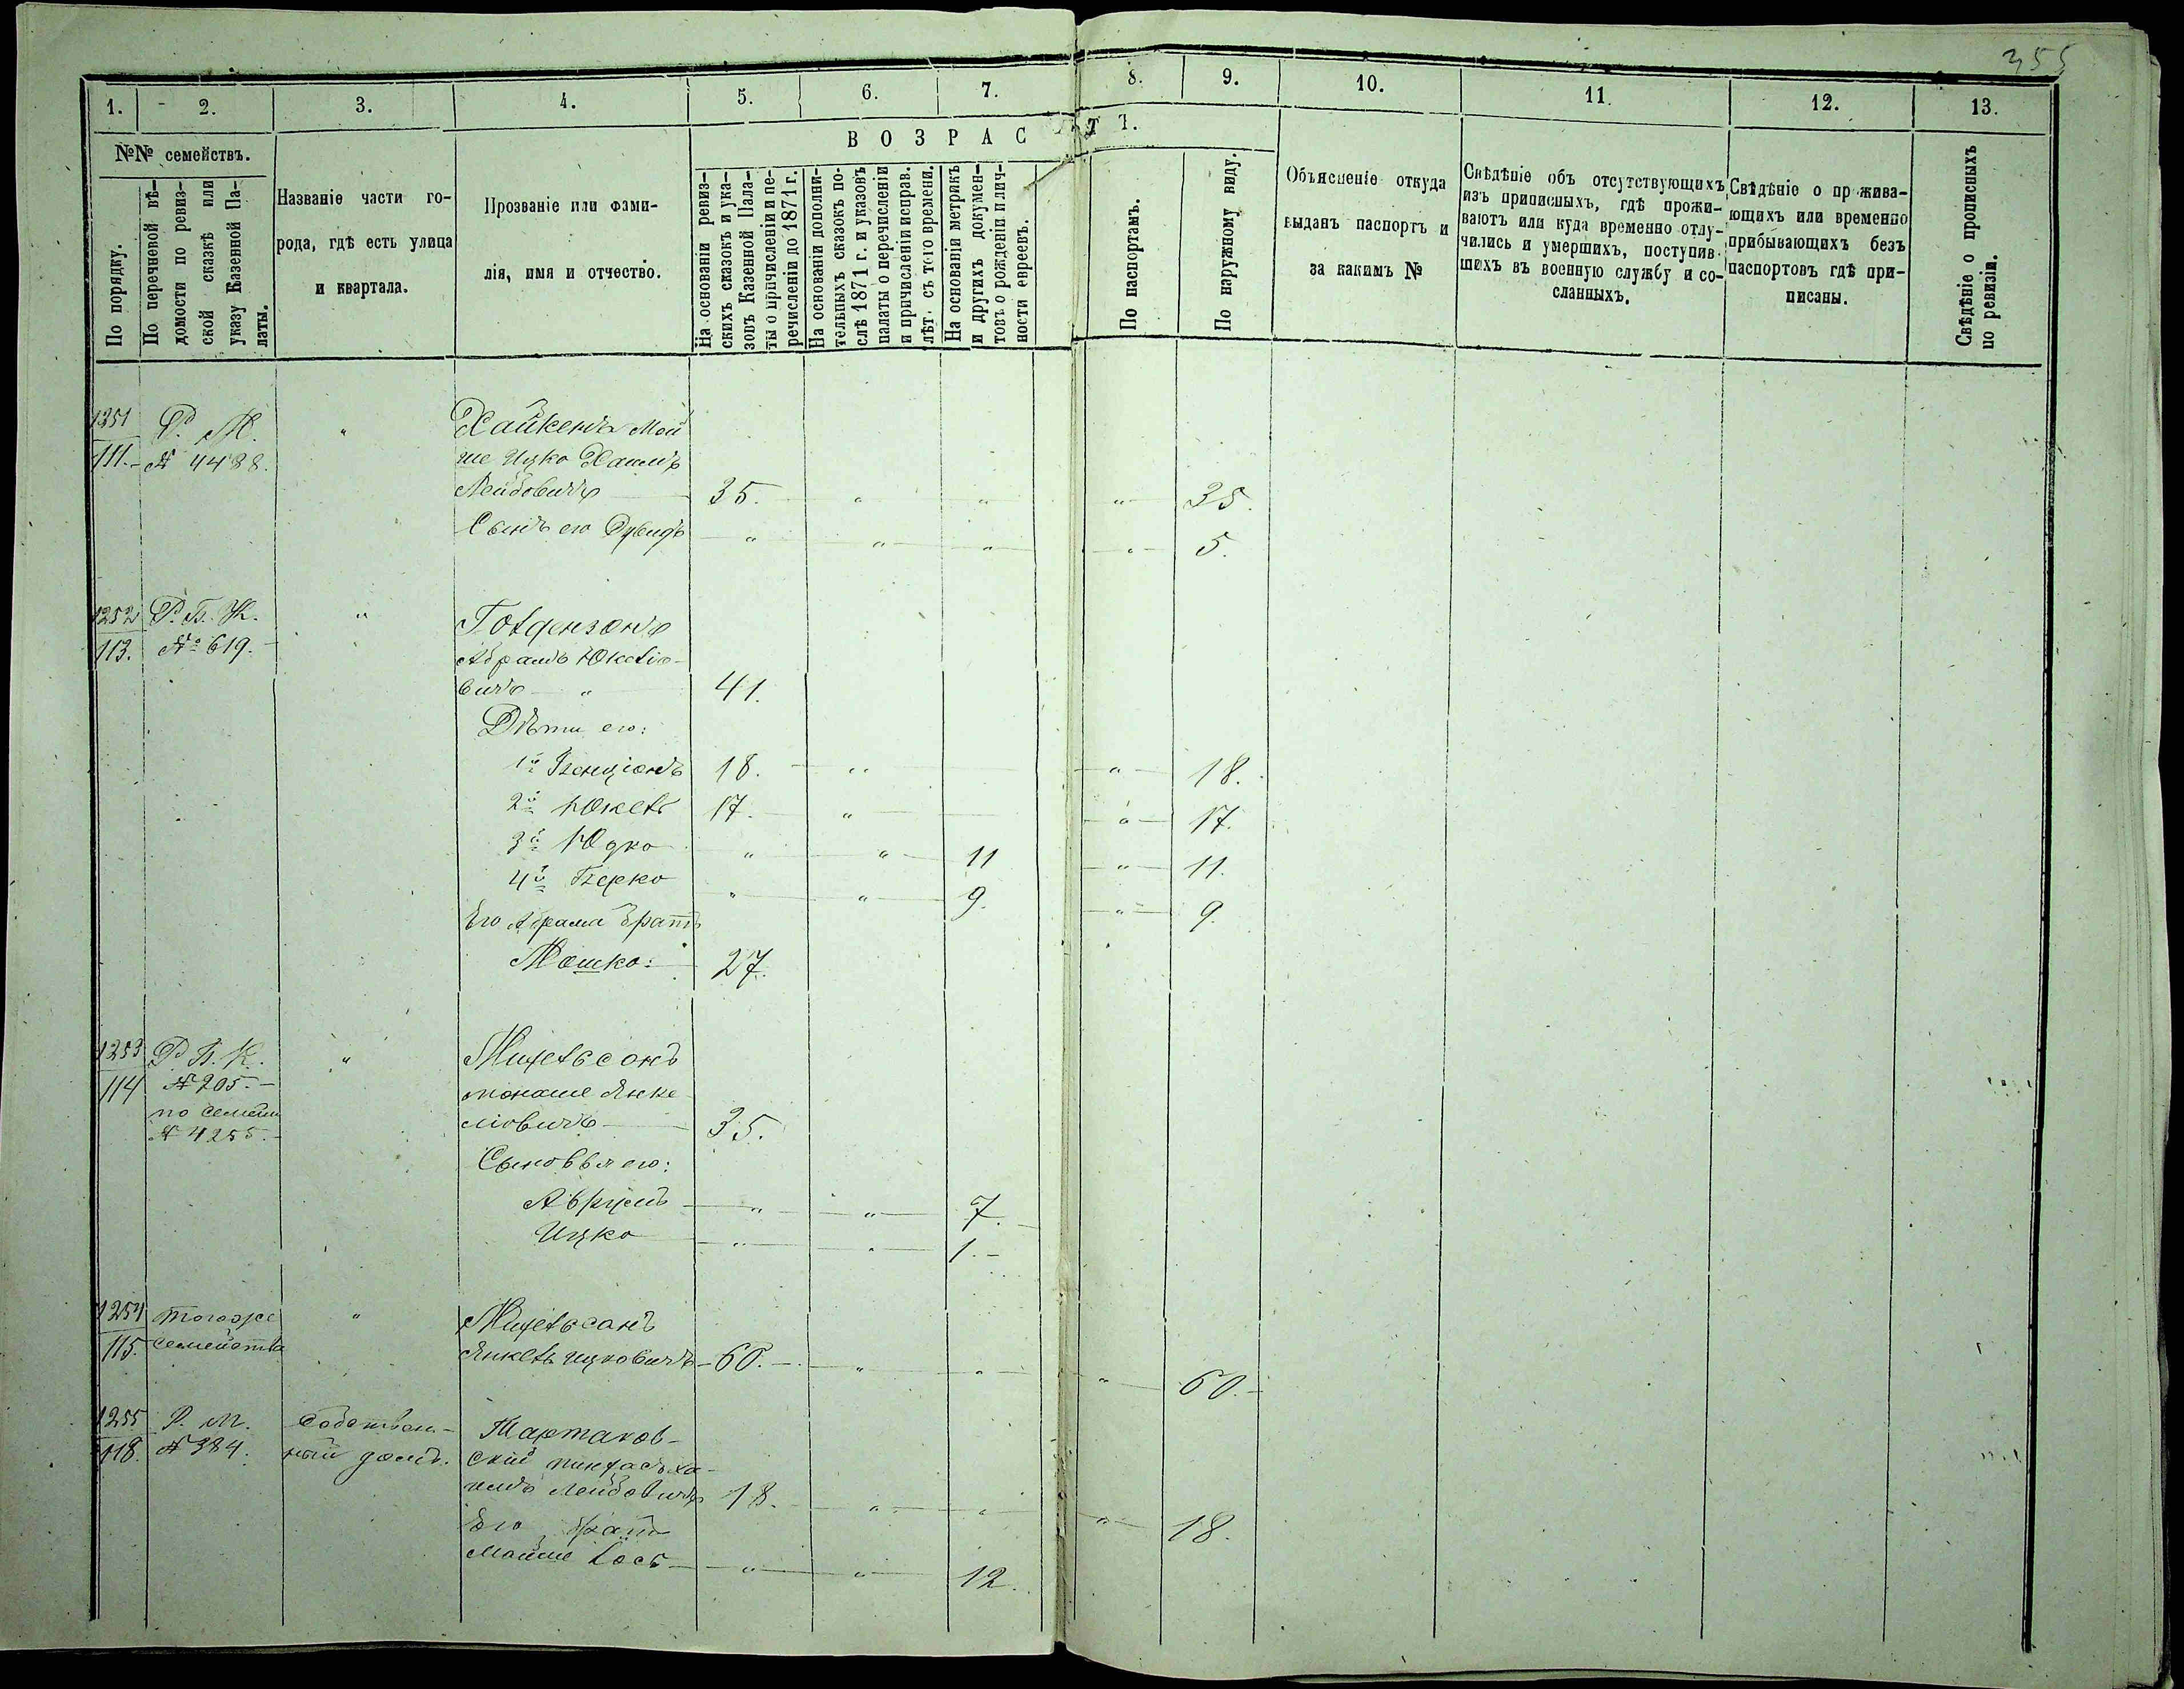 355
1. 2. 3. 4. 5. 6. 7. 8. 9. 10. 11. 12. 13.
№№ семействъ.
По порядку.
По перечневой вѣ-
домости по ревиз-
ской сказкѣ или
указу Казенной Па-
латы.
Названіе части го-
рода, гдѣ есть улица
и квартала.
Прозваніе или фами-
лія, имя и отчество.
ВОЗРАСТЪ.
На основаніи ревиз-
скихъ сказокъ и ука-
зовъ Казенной Пала-
ты о причисленіи и пе-
речисленіи до 1871 г.
На основаніи дополни-
тельныхъ сказокъ по-
слѣ 1871 г. и указовъ
палаты о перечисленіи
и причисленіи исправ.
лѣт. съ того времени.
На основаніи метрикъ
и другихъ докумен-
товъ о рожденіи и лич-
ности евреевъ.
По паспортамъ.
По наружному виду.
Объясненіе откуда
выданъ паспортъ и
за какимъ №
Свѣдѣніе объ отсутствующихъ
изъ приписныхъ, гдѣ прожи-
ваютъ или куда временно отлу-
чились и умершихъ, поступив-
шихъ въ военную службу и со-
сланныхъ.
Свѣдѣніе о прожива-
ющихъ или временно
прибывающихъ безъ
паспортовъ гдѣ при-
писаны.
Свѣдѣніе о прописныхъ
по ревизіи.
1251 Р. М. " Хайкенъ Мой
111. № 4488. ше Ицко Хаимъ
Лейбовичъ 35. " " " 35.
Сынъ его Дувидъ " " " " 5.
1252 Р. Б. Ж. " Голдензонъ
113. № 619. Абрамъ Юкелio-
вичъ " 41.
Дѣти его:
1й Бенціонъ 18. " " 18.
2й Юкель 17. " " 17.
3й Юдко " " 11 " 11.
4й Берко " " 9. " 9.
Его Абрама братъ
Мошко: 27.
1253 Р. Б. К. " Мицельсонъ
114 № 205. монаше Янке
по семейн лiовичъ 35.
№ 4255.
Сыновья его:
Аврумъ " " 7.
Ицко " " 1.
1254 тогоже " Мицельсонъ
115. семейства Янкель Ицковичъ 60. " " " 60.
1255 Р. М. собствен- Мартаков-
118. № 384. ный домъ. скій пинхасъ ха-
имъ Лейбовичъ 18. " " " 18.
Его братъ
Мойше Iось " " 12.